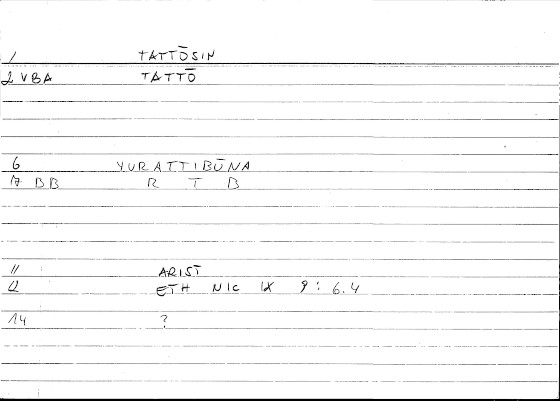 1 TATTŌSIN
2 VBA TATTŌ
6 YURATTIBŪNA
7 BB R T B
11 ARIST
12 ETH NIC IX 9 : 6.4
14 ?